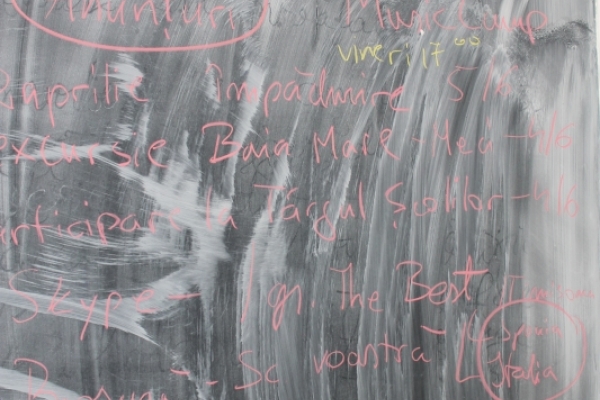 Anunțuri Music Camp
vineri 17 00
2 aprilie Împădurire 5/6
Excursie Baia Mare - 4/6
articipare la Târgul Școlilor - 4/6
Skype - 1 gr. the Best
Sc voastră Spania
Italia